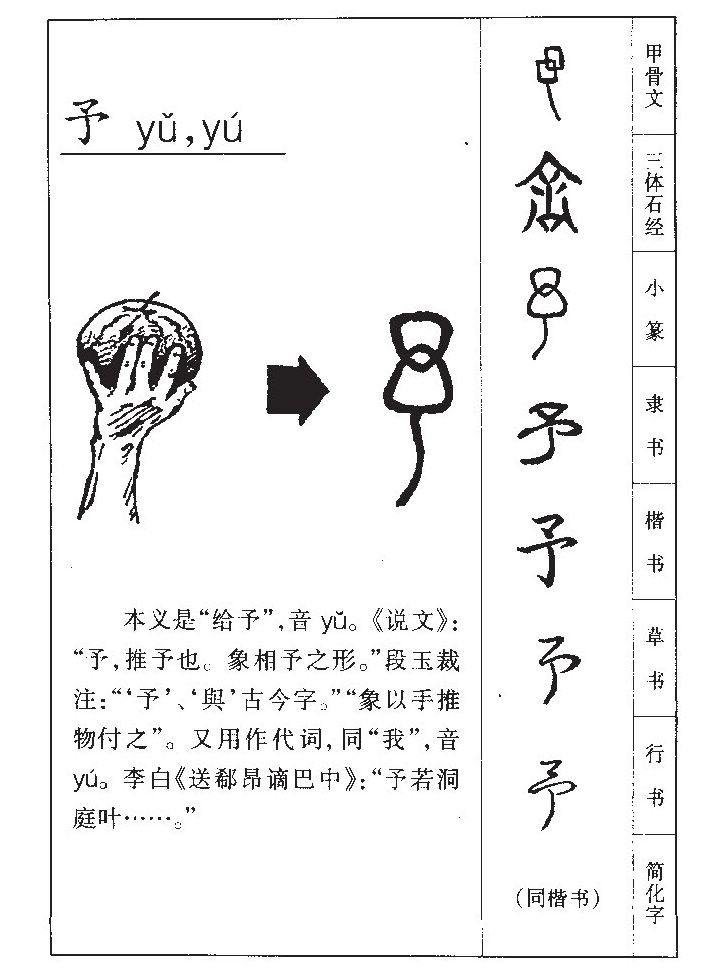 予 yǔ,yú
本义是“给予”,音 yǔ。《说文》:
“予,推予也。象相予之形。”段玉裁
注:“‘予’、‘與’古今字。”“象以手推
物付之”。又用作代词,同“我”,音
yú。李白《送郗昂谪巴中》:“予若洞
庭叶……。”
甲骨文
三体石经
小篆
予
隶书
予
楷书
予
草书
予
行书
(同楷书)
简化字